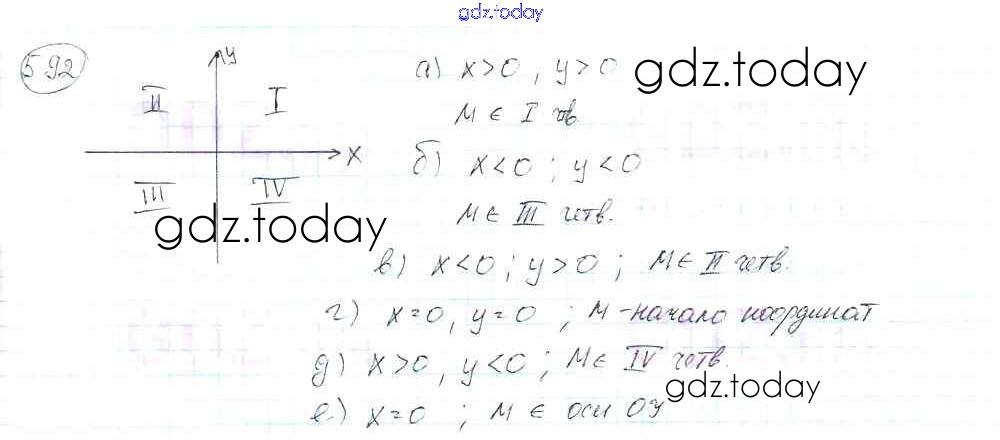 gdz.today
592
y
а) x>0, y>0 gdz.today
II I
M ∈ I тв
x
б) x<0; y<0
III IV
M ∈ III четв.
gdz.today
в) x<0; y>0; M ∈ II четв.
г) x=0, y=0; M - начало координат
д) x>0, y<0; M ∈ IV четв.
gdz.today
е) x=0; M ∈ оси OY